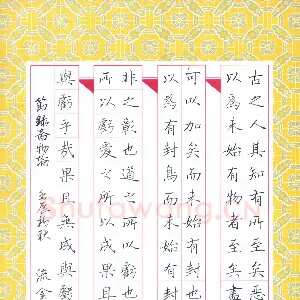 古之人其知有所至矣惡
以爲未始有物者至矣盡
可以加矣而未始有封也
以爲有封焉而未始有封
非之彰也道之所以虧也
所以虧愛之所以成
與虧乎哉果且無成與虧
節錄齊物論 秋 流金
Shufawang.CN